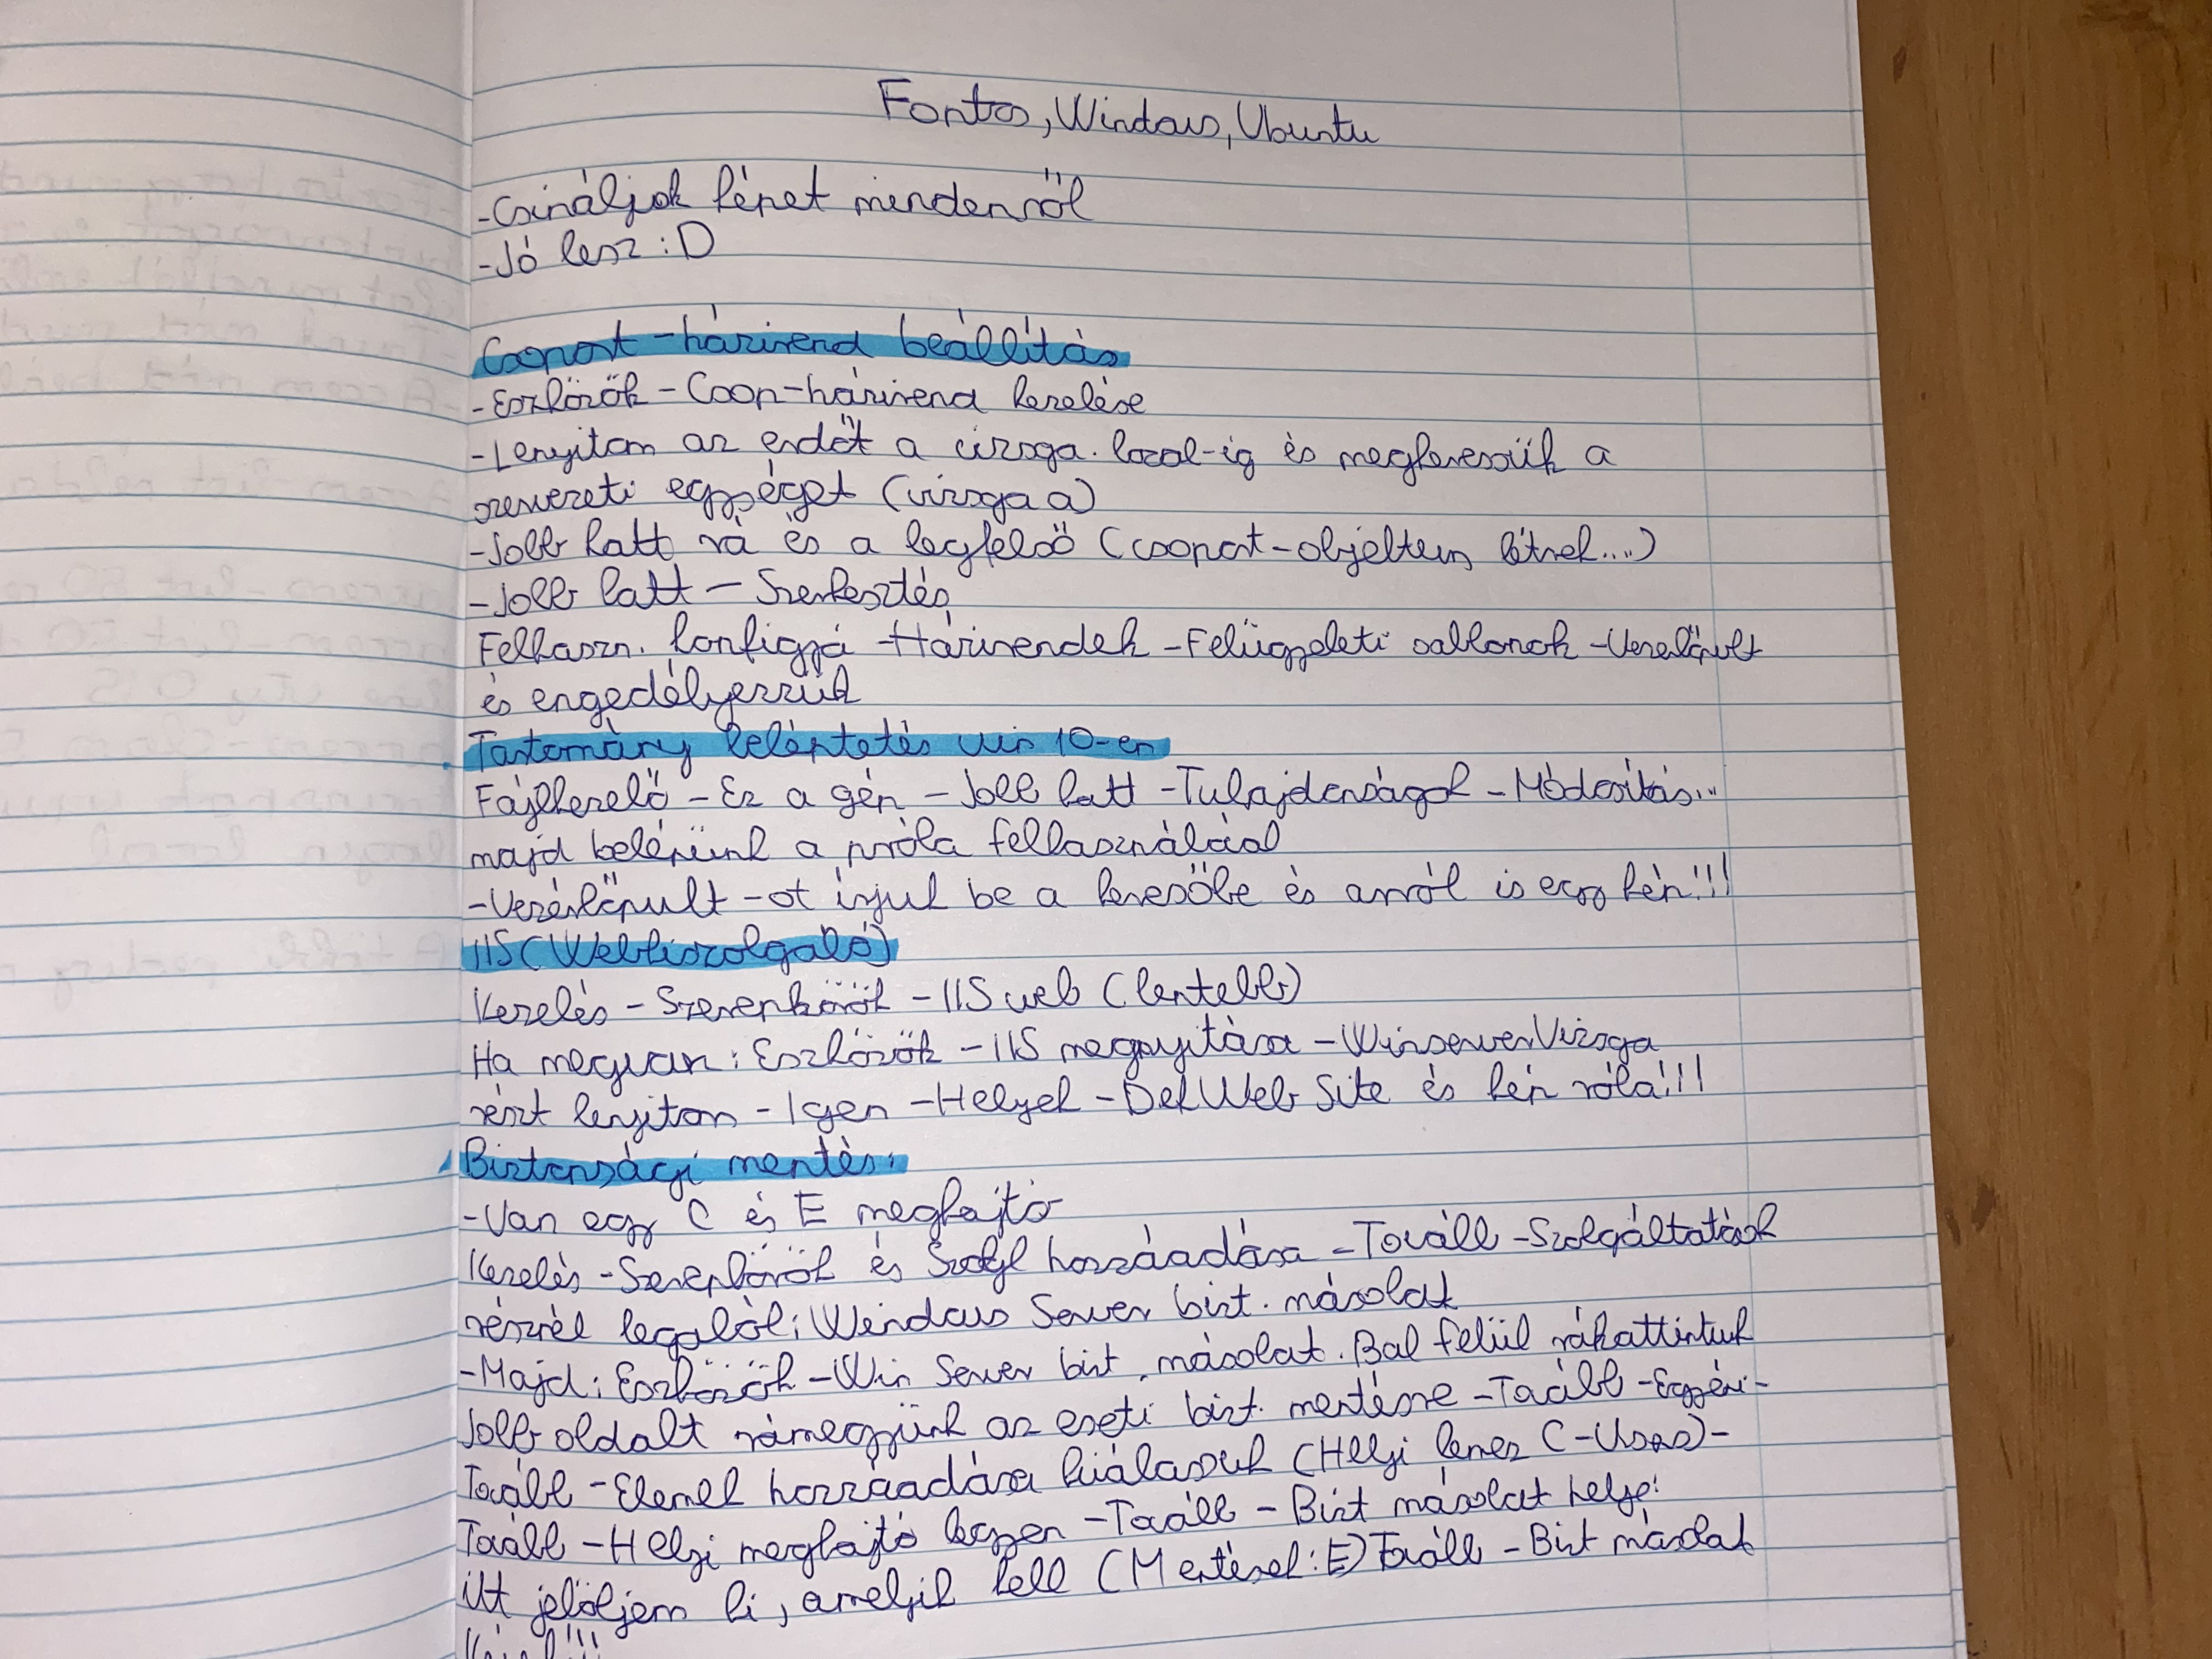 Fontos, Windows, Ubuntu
-Csináljak képet mindenről
-Jó lesz :D
Csoport-házirend beállítás
-Eszközök-Csop-házirend kezelése
-Lenyitom az erdőt a vizsga.local-ig és megkeressük a
szervezeti egységet (vizsga a)
-Jobb katt rá és a legfelső (csoport-objektum létreh...)
-Jobb katt - Szerkesztés
Felhaszn. konfigja -Házirendek -Felügyeleti sablonok -Vezérlőpult
és engedélyezzük
Tartomány beléptetés win 10-en
Fájlkezelő - Ez a gép - Jobb katt -Tulajdonságok -Módosítás...
majd belépünk a próba felhasználóval
-Vezérlőpult-ot írjuk be a keresőbe és arról is egy kép!!!
IIS (Webkiszolgáló)
Kezelés - Szerepkörök - IIS web (lentebb)
Ha megvan: Eszközök - IIS megnyitása -WinserverVizsga
részt lenyitom - Igen -Helyek -Def Web Site és kép róla!!!
Biztonsági mentés:
-Van egy C és E meghajtó
Kezelés -Szerepkörök és Szolg hozzáadása -Tovább -Szolgáltatások
résznél legalól: Windows Server bizt. másolat
-Majd: Eszközök -Win Server bizt. másolat. Bal felül rákattintunk
Jobb oldalt rámegyünk az eseti bizt. mentésre -Tovább -Egyéni-
Tovább -Elemek hozzáadása kiválasztjuk (Helyi lemez C -Users)-
Tovább -Helyi meghajtó legyen -Tovább - Bizt másolat helye:
Itt jelöljem ki, amelyik kell (Mentések: E) Tovább -Bizt másolat